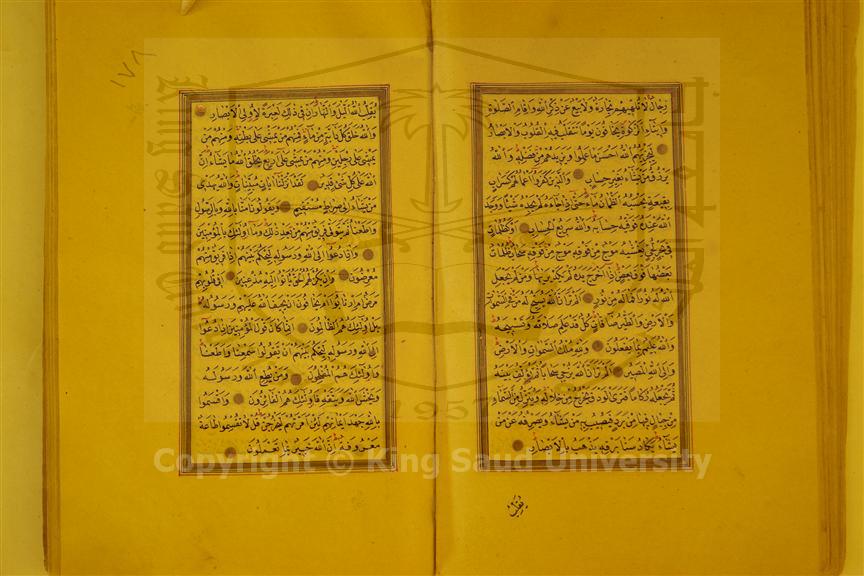 رجال لا تلهيهم تجارة ولا بيع عن ذكر الله واقام الصلوة
وايتاء الزكوة يخافون يوما تتقلب فيه القلوب والابصار
ليجزيهم الله احسن ما عملوا ويزيدهم من فضله والله
يرزق من يشاء بغير حساب والذين كفروا اعمالهم كسراب
بقيعة يحسبه الظمان ماء حتى اذا جاءه لم يجده شيئا ووجد
الله عنده فوفيه حسابه والله سريع الحساب او كظلمات
في بحر لجي يغشيه موج من فوقه موج من فوقه سحاب ظلمات
بعضها فوق بعض اذا اخرج يده لم يكد يريها ومن لم يجعل
الله له نورا فما له من نور الم تر ان الله يسبح له من في السموات
والارض والطير صافات كل قد علم صلاته وتسبيحه
والله عليم بما يفعلون ولله ملك السموات والارض
والى الله المصير الم تر ان الله يزجي سحابا ثم يؤلف بينه
ثم يجعله ركاما فترى الودق يخرج من خلاله وينزل من السماء
من جبال فيها من برد فيصيب به من يشاء ويصرفه عن من
يشاء يكاد سنا برقه يذهب بالابصار
يقلب
١٧٨
يقلب الله اليل والنهار ان في ذلك لعبرة لاولي الابصار
والله خلق كل دابة من ماء فمنهم من يمشي على بطنه ومنهم من
يمشي على رجلين ومنهم من يمشي على اربع يخلق الله ما يشاء ان
الله على كل شئ قدير لقد انزلنا ايات مبينات والله يهدي
من يشاء الى صراط مستقيم ويقولون امنا بالله وبالرسول
واطعنا ثم يتولى فريق منهم من بعد ذلك وما اولئك بالمؤمنين
واذا دعوا الى الله ورسوله ليحكم بينهم اذا فريق منهم
معرضون وان يكن لهم الحق ياتوا اليه مذعنين افي قلوبهم
مرض ام ارتابوا ام يخافون ان يحيف الله عليهم ورسوله
بل اولئك هم الظالمون انما كان قول المؤمنين اذا دعوا
الى الله ورسوله ليحكم بينهم ان يقولوا سمعنا واطعنا
واولئك هم المفلحون ومن يطع الله ورسوله
ويخش الله ويتقه فاولئك هم الفائزون واقسموا
بالله جهد ايمانهم لئن امرتهم ليخرجن قل لا تقسموا طاعة
معروفة ان الله خبير بما تعملون
1957
Copyright © King Saud University